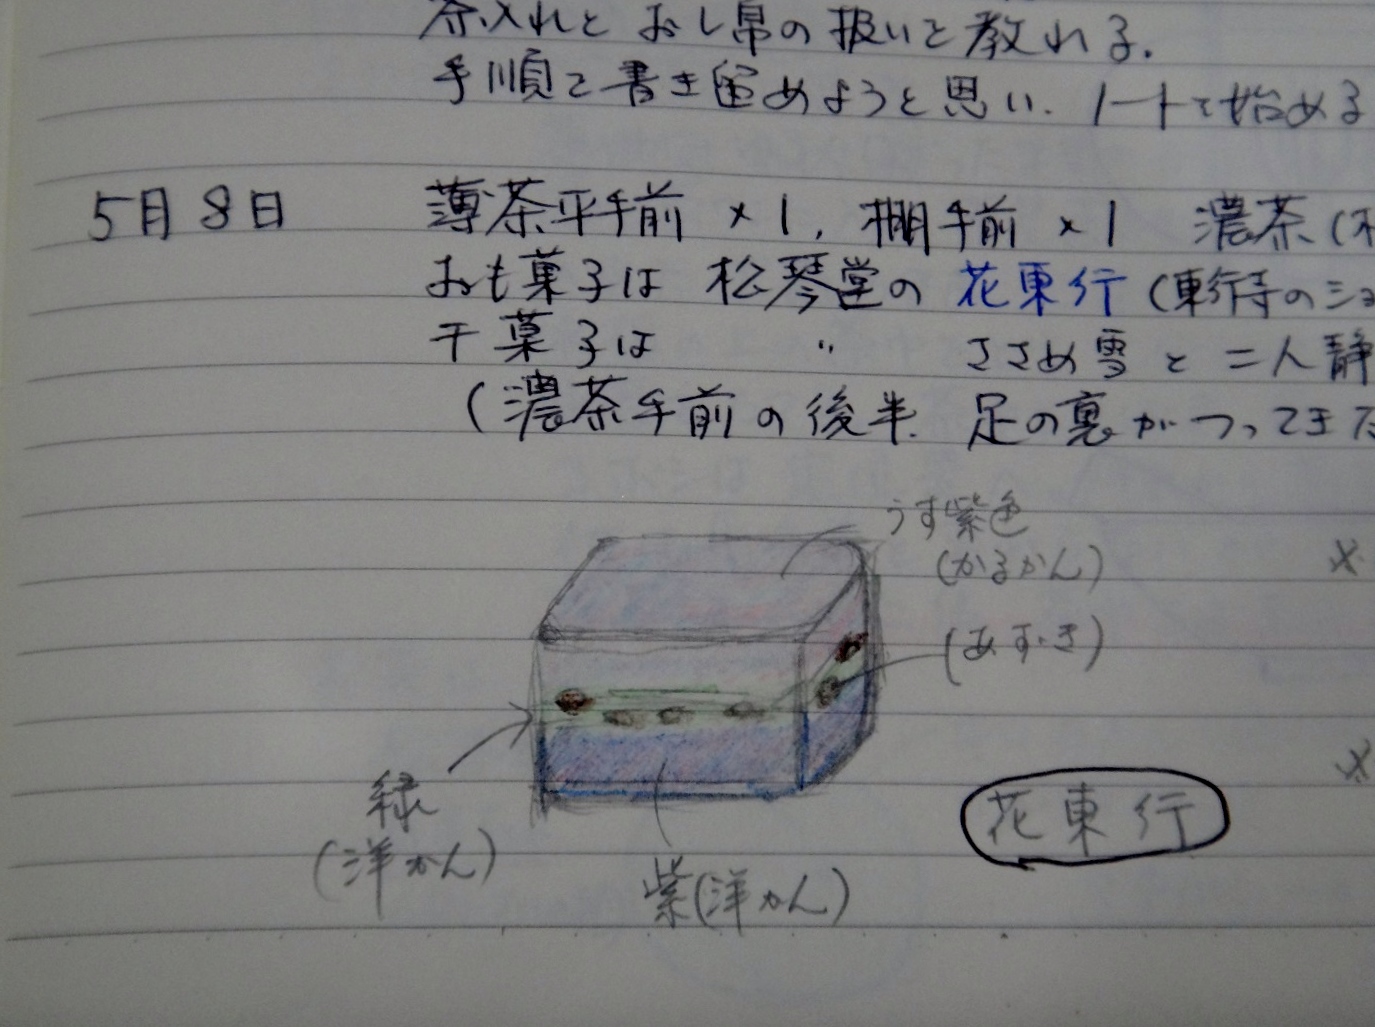 茶入れと おし帛の扱いを教れる.
手順を書き留めようと思い. ノートを始める
5月8日 薄茶平手前 ×1, 棚手前 ×1 濃茶(
おも菓子は 松琴堂の 花東行 (東行寺のショ
干菓子は 〃 ささめ雪 と 二人静
(濃茶手前の後半. 足の裏がつってきた
うす紫色
(かるかん)
×
(あずき)
緑
(洋かん)
紫(洋かん)
花東行
×